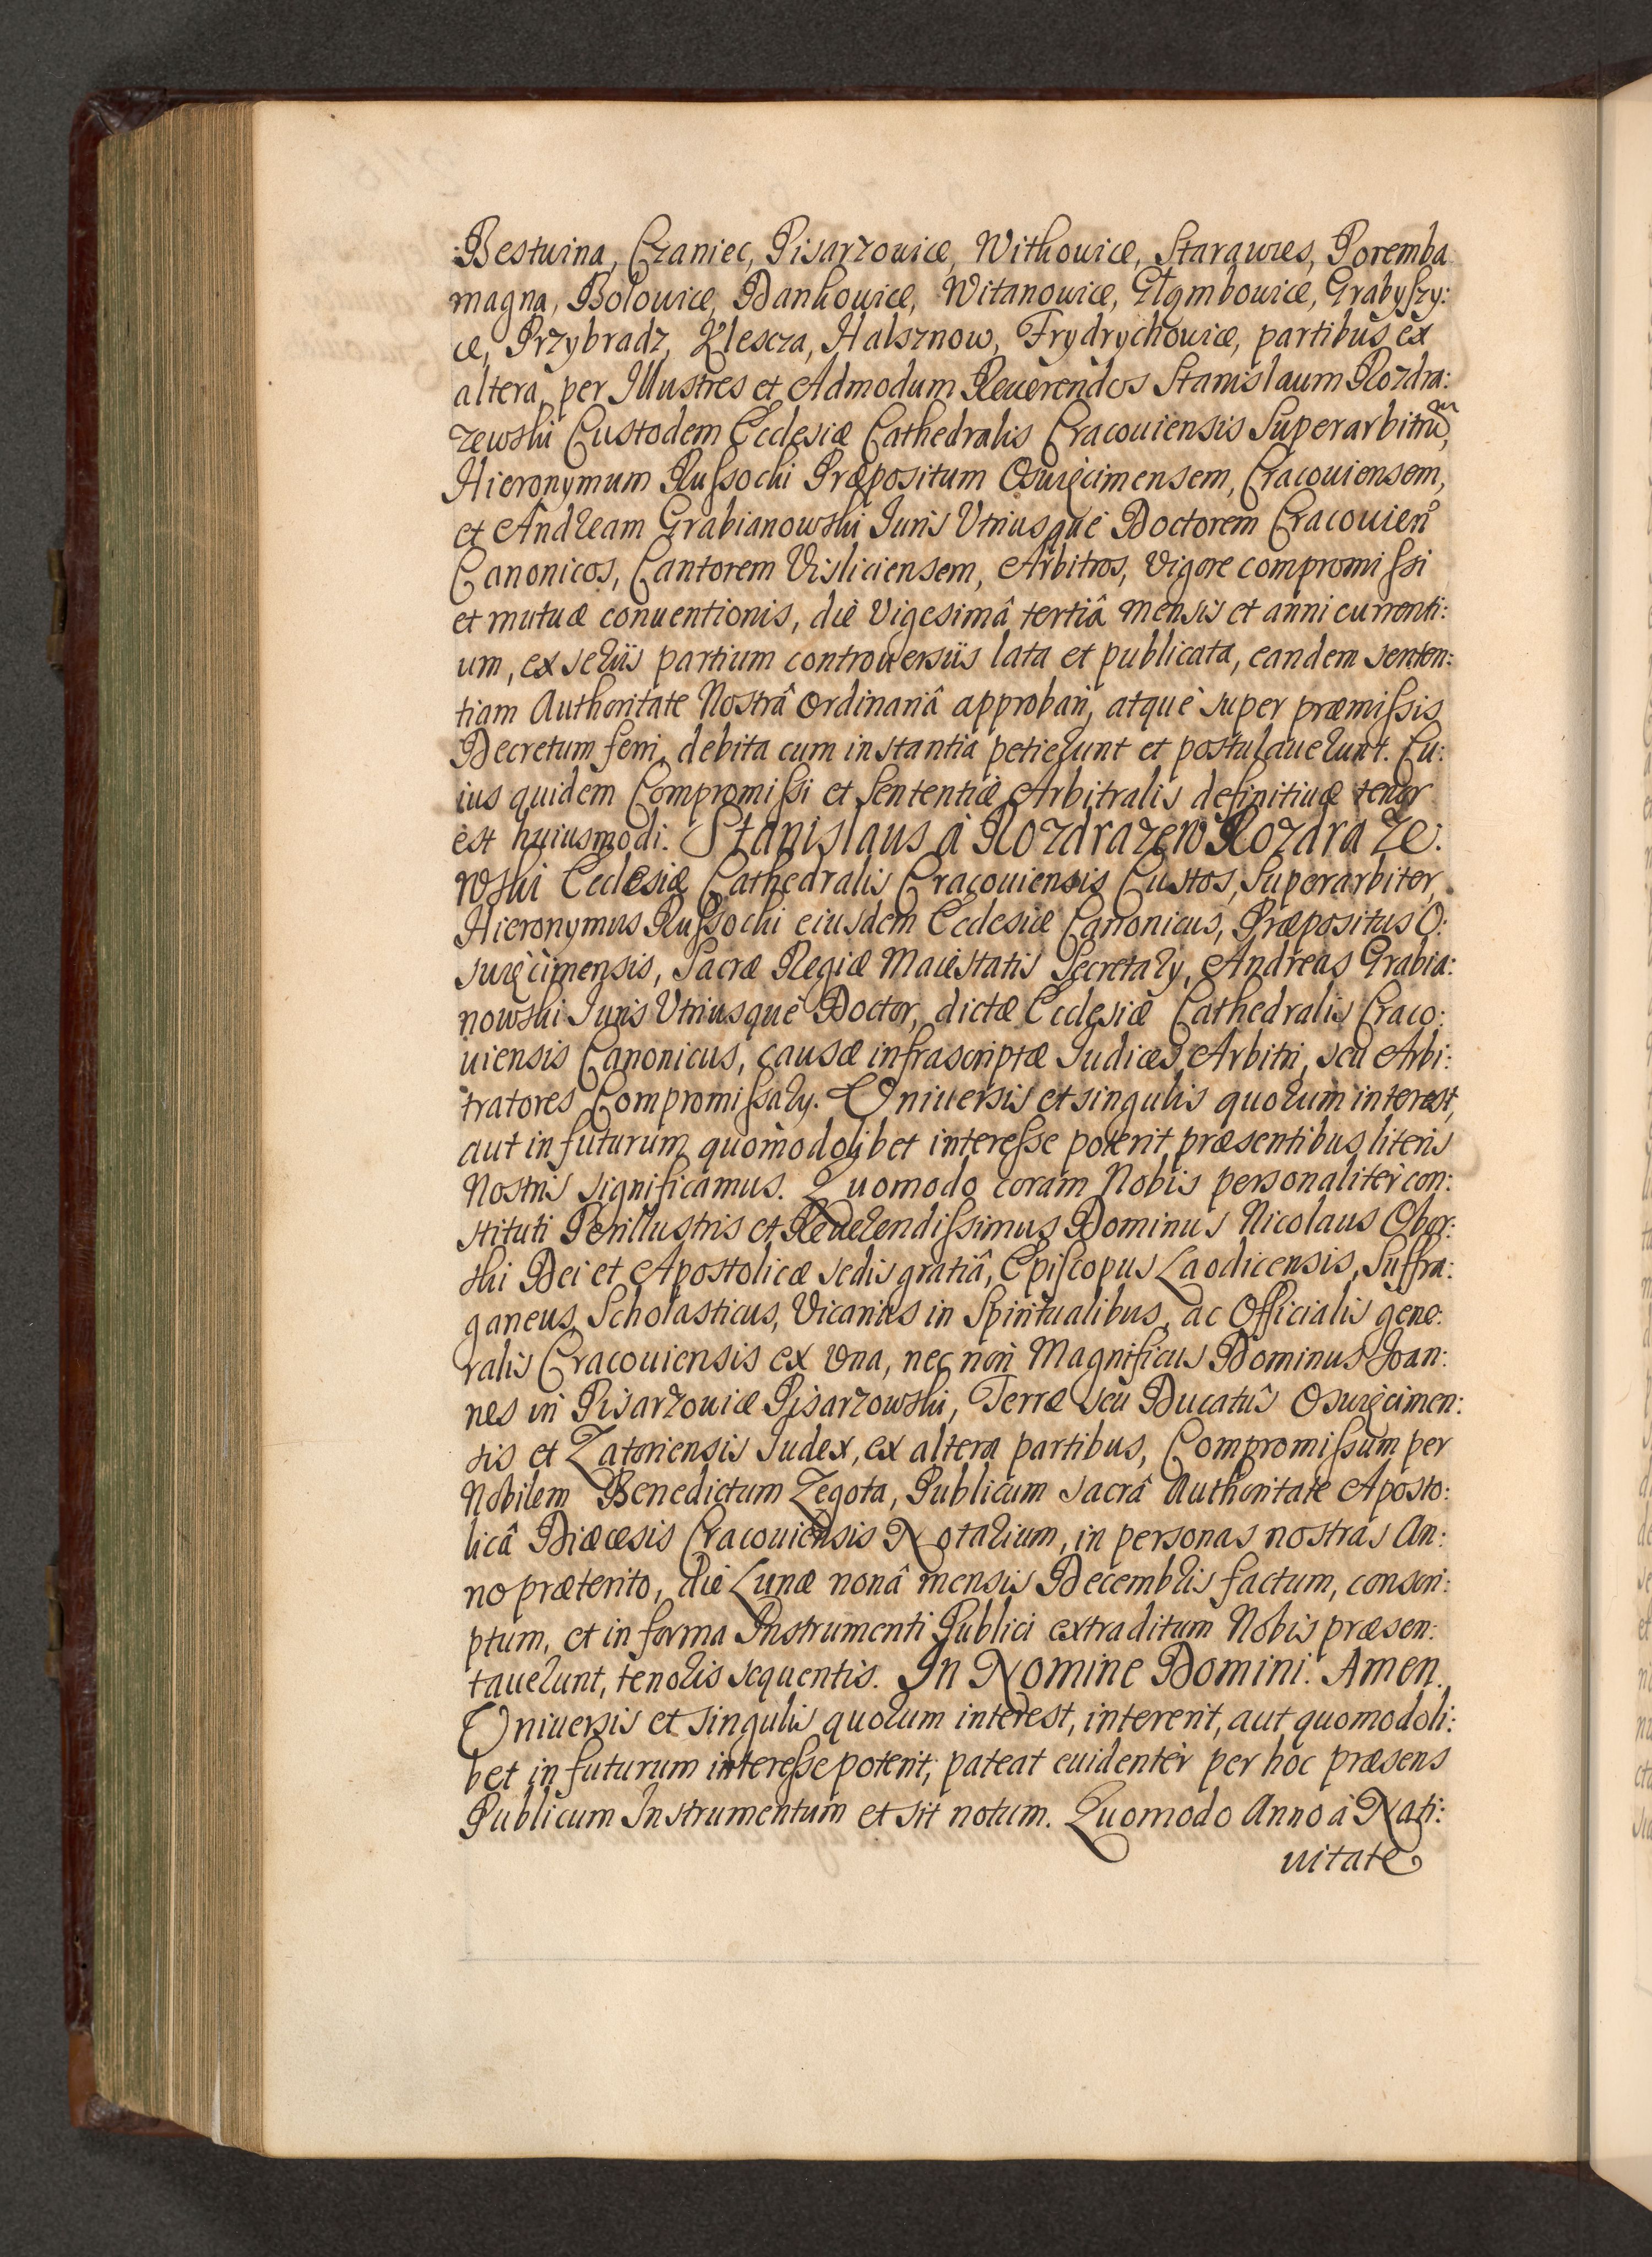 Bestwina, Czaniec, Pisarzouicæ, Withouicæ, Starawies, Poremba
magna, Bolouicæ, Dankouicæ, Witanouicæ, Głęmbouicæ, Grabyſzy:
cæ, Przybradz, Klescza, Halsznow, Frydrychouicæ, partibus ex
altera, per Illustres et Admodum Reuerendos Stanislaum Rozdra:
zewski Custodem Ecclesiæ Cathedralis Cracouiensis Superarbitrũ,
Hieronymum Ruſsocki Præpositum Oswięcimensem, Cracouiensem,
et Andream Grabianowski Iuris Utriusque Doctorem Cracouien̄
Canonicos, Cantorem Visliciensem, Arbitros, Vigore compromiſsi
et mutuæ conuentionis, die Vigesimâ tertiâ mensis et anni currenti:
um, ex seriis partium controuersiis lata et publicata, eandem senten:
tiam Authoritate Nostrâ Ordinariâ approbari, atque super præmiſsis
Decretum ferri, debita cum instantia petierunt et postulauerunt. Cu:
ius quidem Compromiſsi et Sententiæ Arbitralis definitiuæ tenor
est huiusmodi. Stanislaus à Rozdrazew Rozdraze:
wski Ecclesiæ Cathedralis Cracouiensis Custos, Superarbiter,
Hieronymus Ruſsocki eiusdem Ecclesiæ Canonicus, Præpositus O:
swięcimensis, Sacræ Regiæ Maiestatis Secretary, Andreas Grabia:
nowski Iuris Utriusque Doctor, dictæ Ecclesiæ Cathedralis Craco:
uiensis Canonicus, causæ infrascriptæ Iudices, Arbitri, seu Arbi:
tratores Compromiſsary. Vniuersis et singulis quorum interest,
aut in futurum quomodolibet intereſse poterit præsentibus literis
Nostris significamus. Quomodo coram Nobis personaliter con:
stituti Perillustris et Reuerendiſsimus Dominus Nicolaus Obor:
ski Dei et Apostolicæ sedis gratiâ, Epiſcopus Laodicensis, Suffra:
ganeus, Scholasticus, Vicarius in Spiritualibus, ac Officialis gene:
ralis Cracouiensis ex Vna, nec non Magnificus Dominus Joan:
nes in Pisarzouicæ Pisarzowski, Terræ seu Ducatûs Oswięcimen:
sis et Zatoriensis Iudex, ex altera partibus, Compromiſsum per
Nobilem Benedictum Zegota, Publicum sacrâ Authoritate Aposto:
licâ Diæcesis Cracouiensis Notarium, in personas nostras An:
no præterito, die Lunæ nonâ mensis Decembris factum, conscri:
ptum, et in forma Instrumenti Publici extraditum Nobis præsen:
tauerunt, tenoris sequentis. In Nomine Domini. Amen.
Vniuersis et singulis quorum interest, intererit, aut quomodoli:
bet in futurum intereſse poterit, pateat euidenter per hoc præsens
Publicum Instrumentum et sit notum. Quomodo Anno à Nati:
uitate